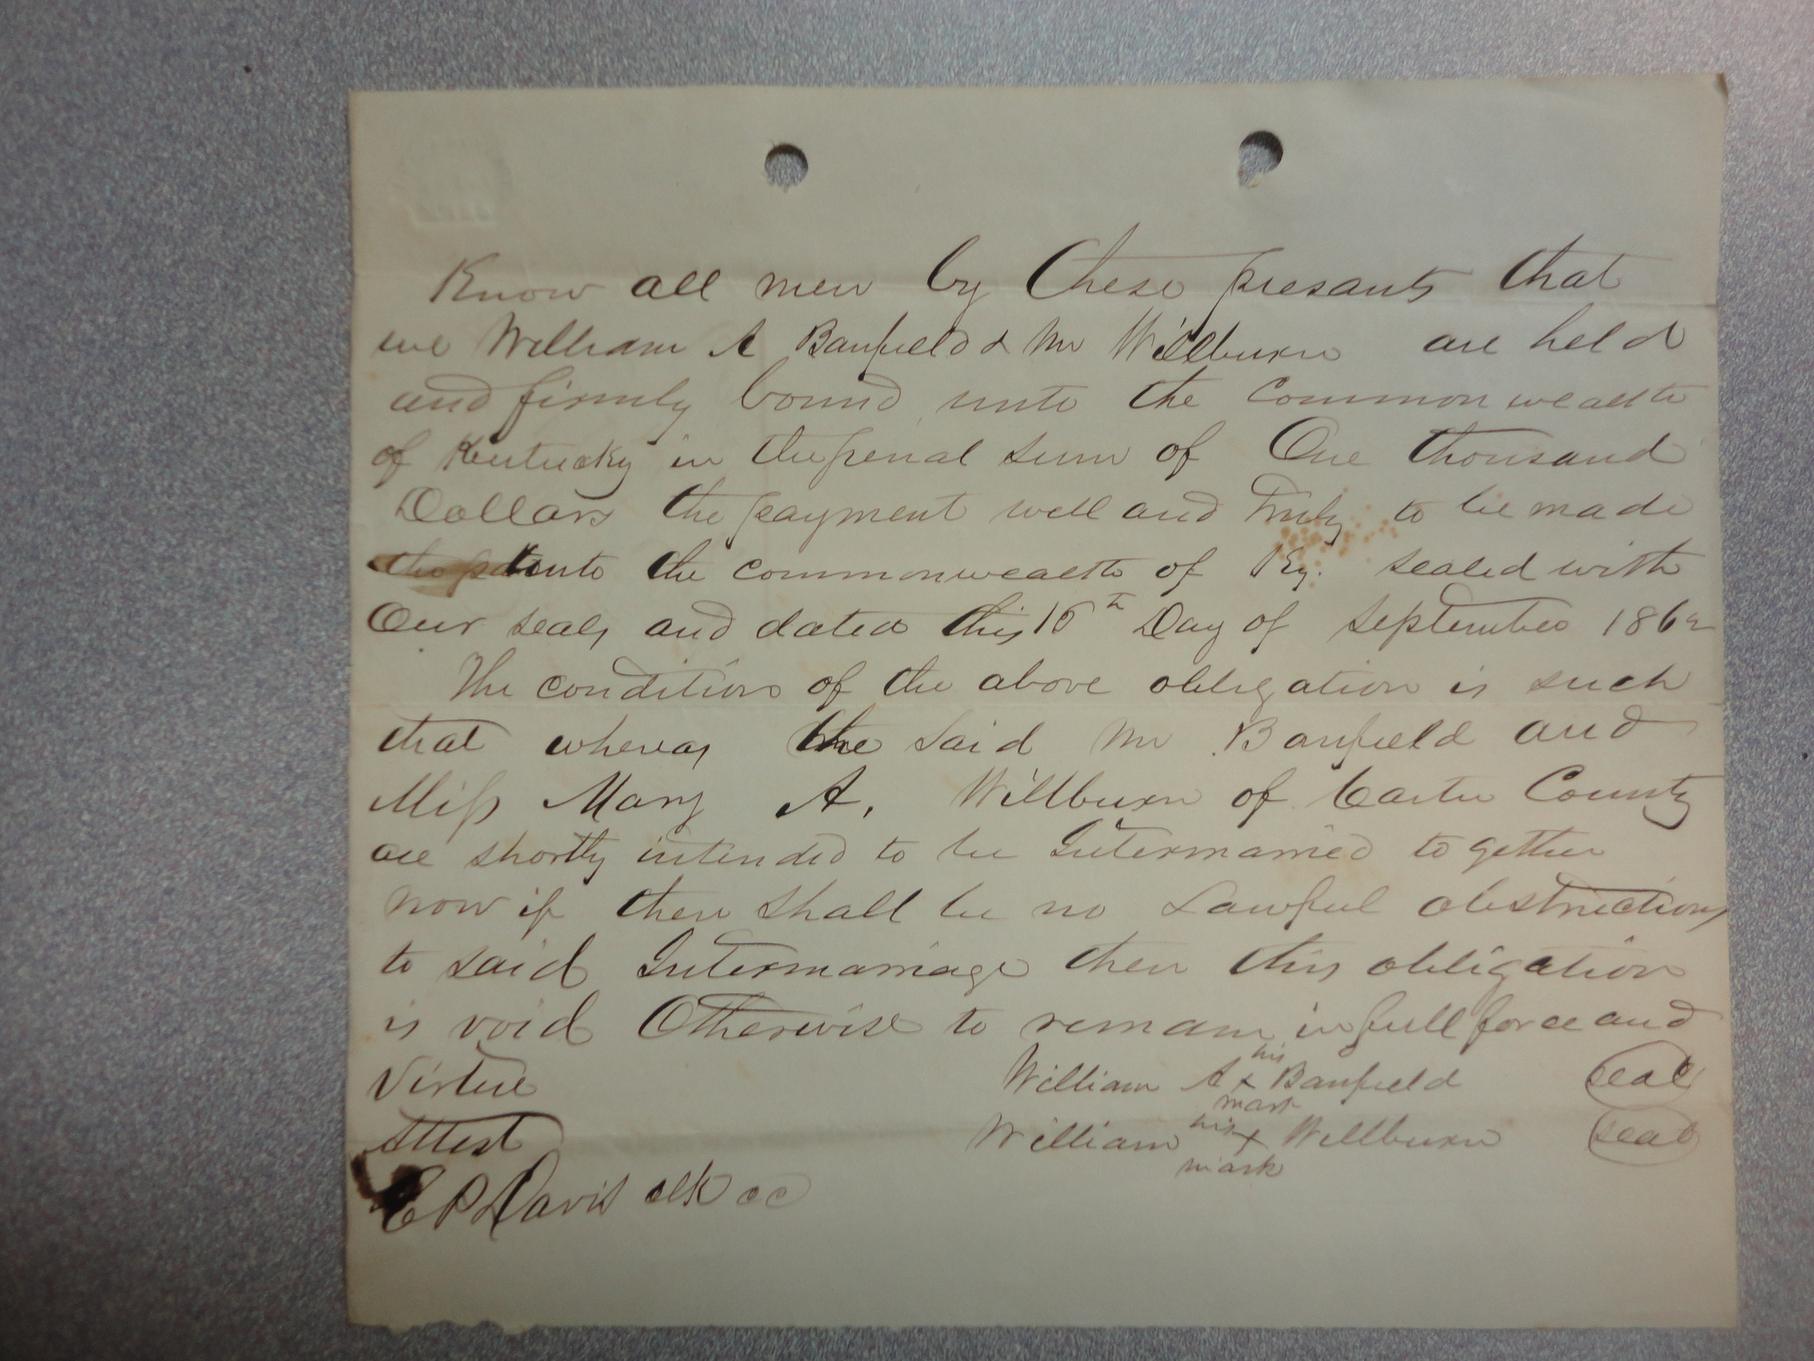 Know all men by these presants that
we William A Banfield & Wm Willburn are held
and firmly bound unto the Commonwealth
of Kentucky in the penal sum of One thousand
Dollars the payment well and Truly to be made
unto the commonwealth of Ky. sealed with
Our seals and dated this 15th Day of September 1862
The condition of the above obligation is such
that whereas the said Wm Banfield and
Miss Mary A. Willburn of Carter County
are shortly intended to be Intermarried together
now if there shall be no Lawful obstructions
to said Intermarriage then this obligation
is void Otherwise to remain in full force and
Virtue
William A his x mark Banfield seal
William his x mark Willburn seal
Attest
E P Davis clk cc